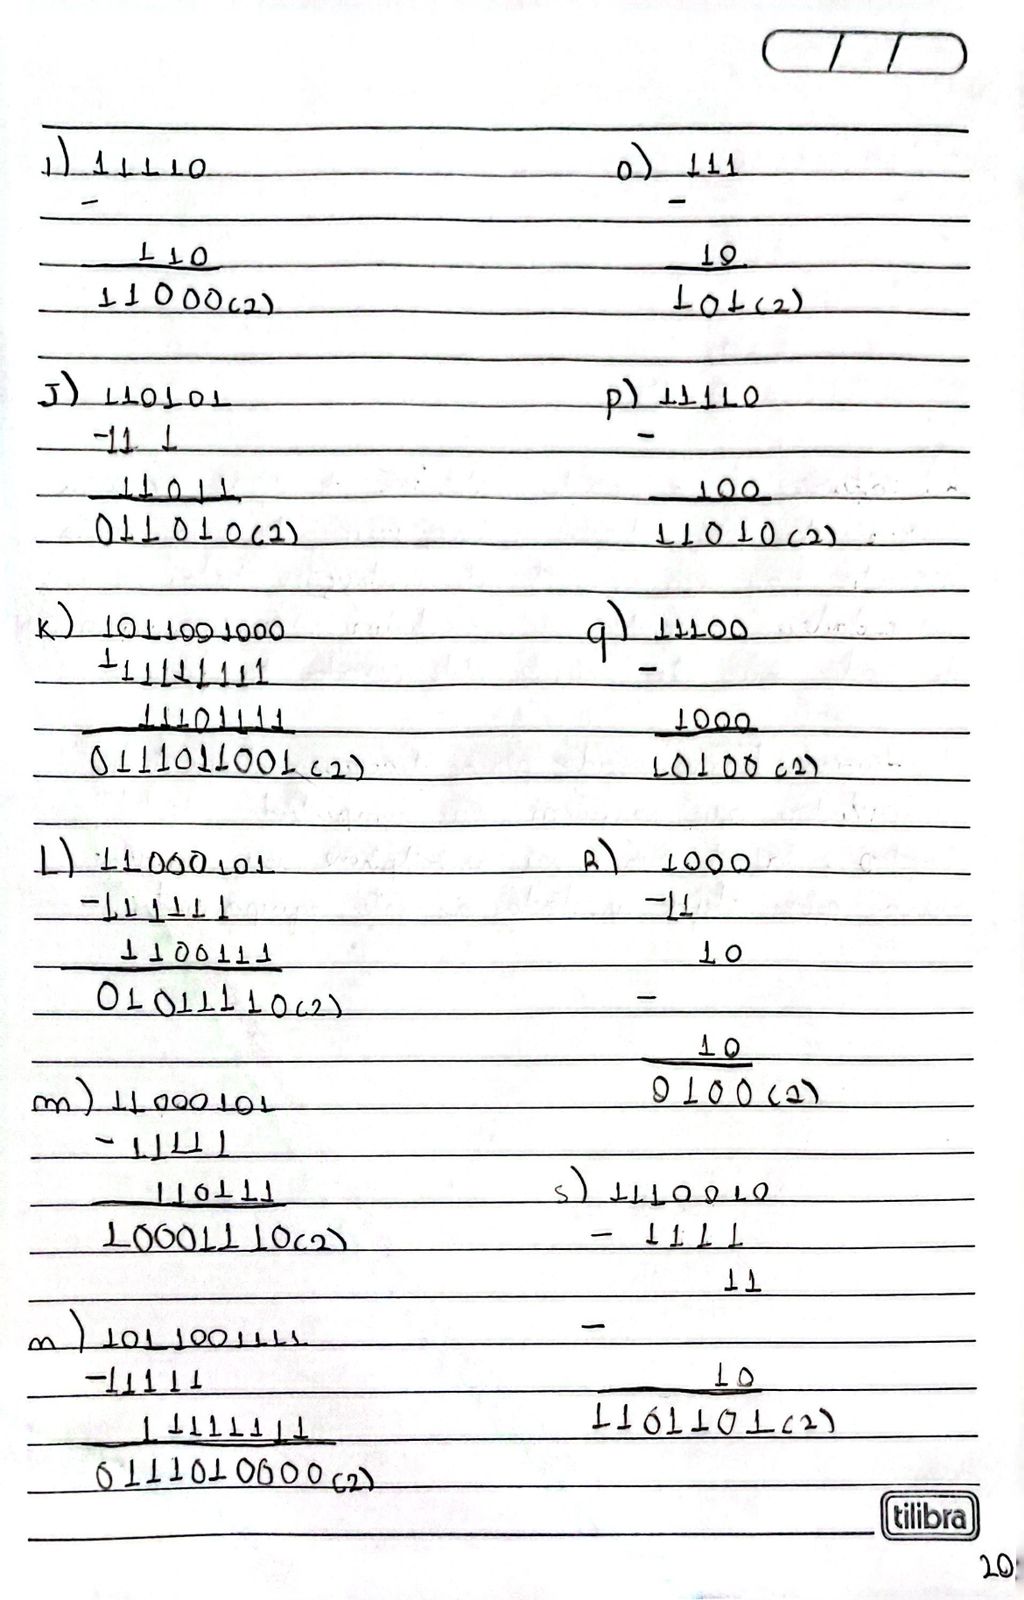 I) 11110
-
110
11000(2)
J) 110101
-11 1
11011
011010(2)
K) 1011001000
-11111111
11101111
0111011001(2)
L) 11000101
-111111
1100111
01011110(2)
m) 11000101
-11111
110111
10001110(2)
n) 1011001111
-11111
11111111
0111010000(2)
o) 111
-
10
101(2)
p) 11110
-
100
11010(2)
q) 11100
-
1000
10100(2)
R) 1000
-11
10
-
10
0100(2)
s) 1110010
- 1111
11
-
10
1101101(2)
tilibra
20